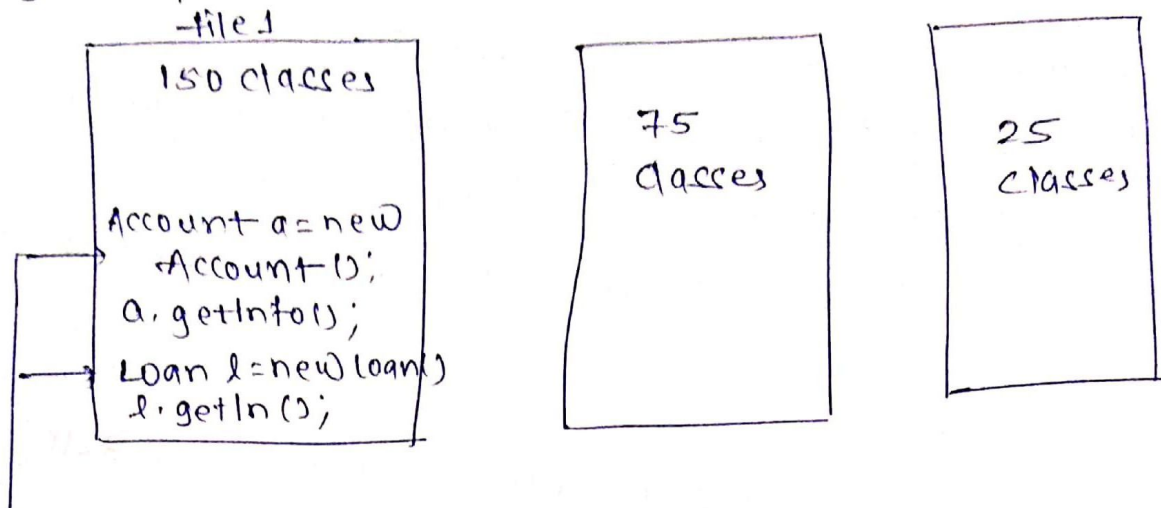 file 1
150 classes
Account a = new
Account ();
a. getInfo();
Loan l = new loan()
l. getIn ();
75
classes
25
classes